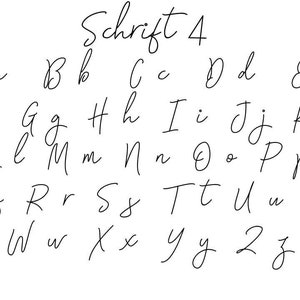 Schrift 4
B b C c D d
G g H h I i J j
l M m N n O o P p
R r S s T t U u
W w X x Y y Z z